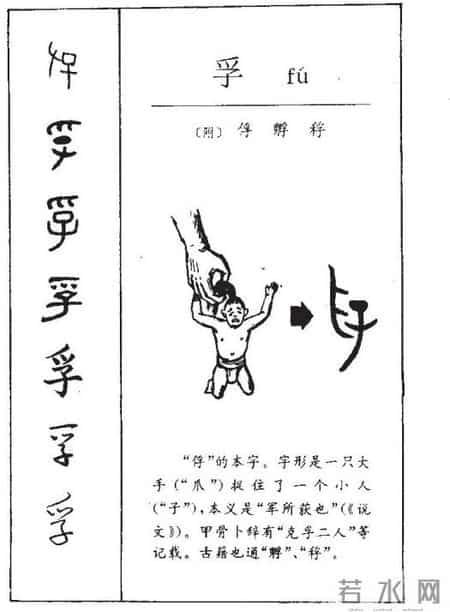 孚
孚
孚
孚
孚
孚
孚 fú
〔附〕 俘 孵 稃
“俘”的本字。字形是一只大
手(“爪”)捉住了一个小人
(“子”),本义是“军所获也”(《说
文》)。甲骨卜辞有“克孚二人”等
记载。古籍也通“孵”、“稃”。
若水网